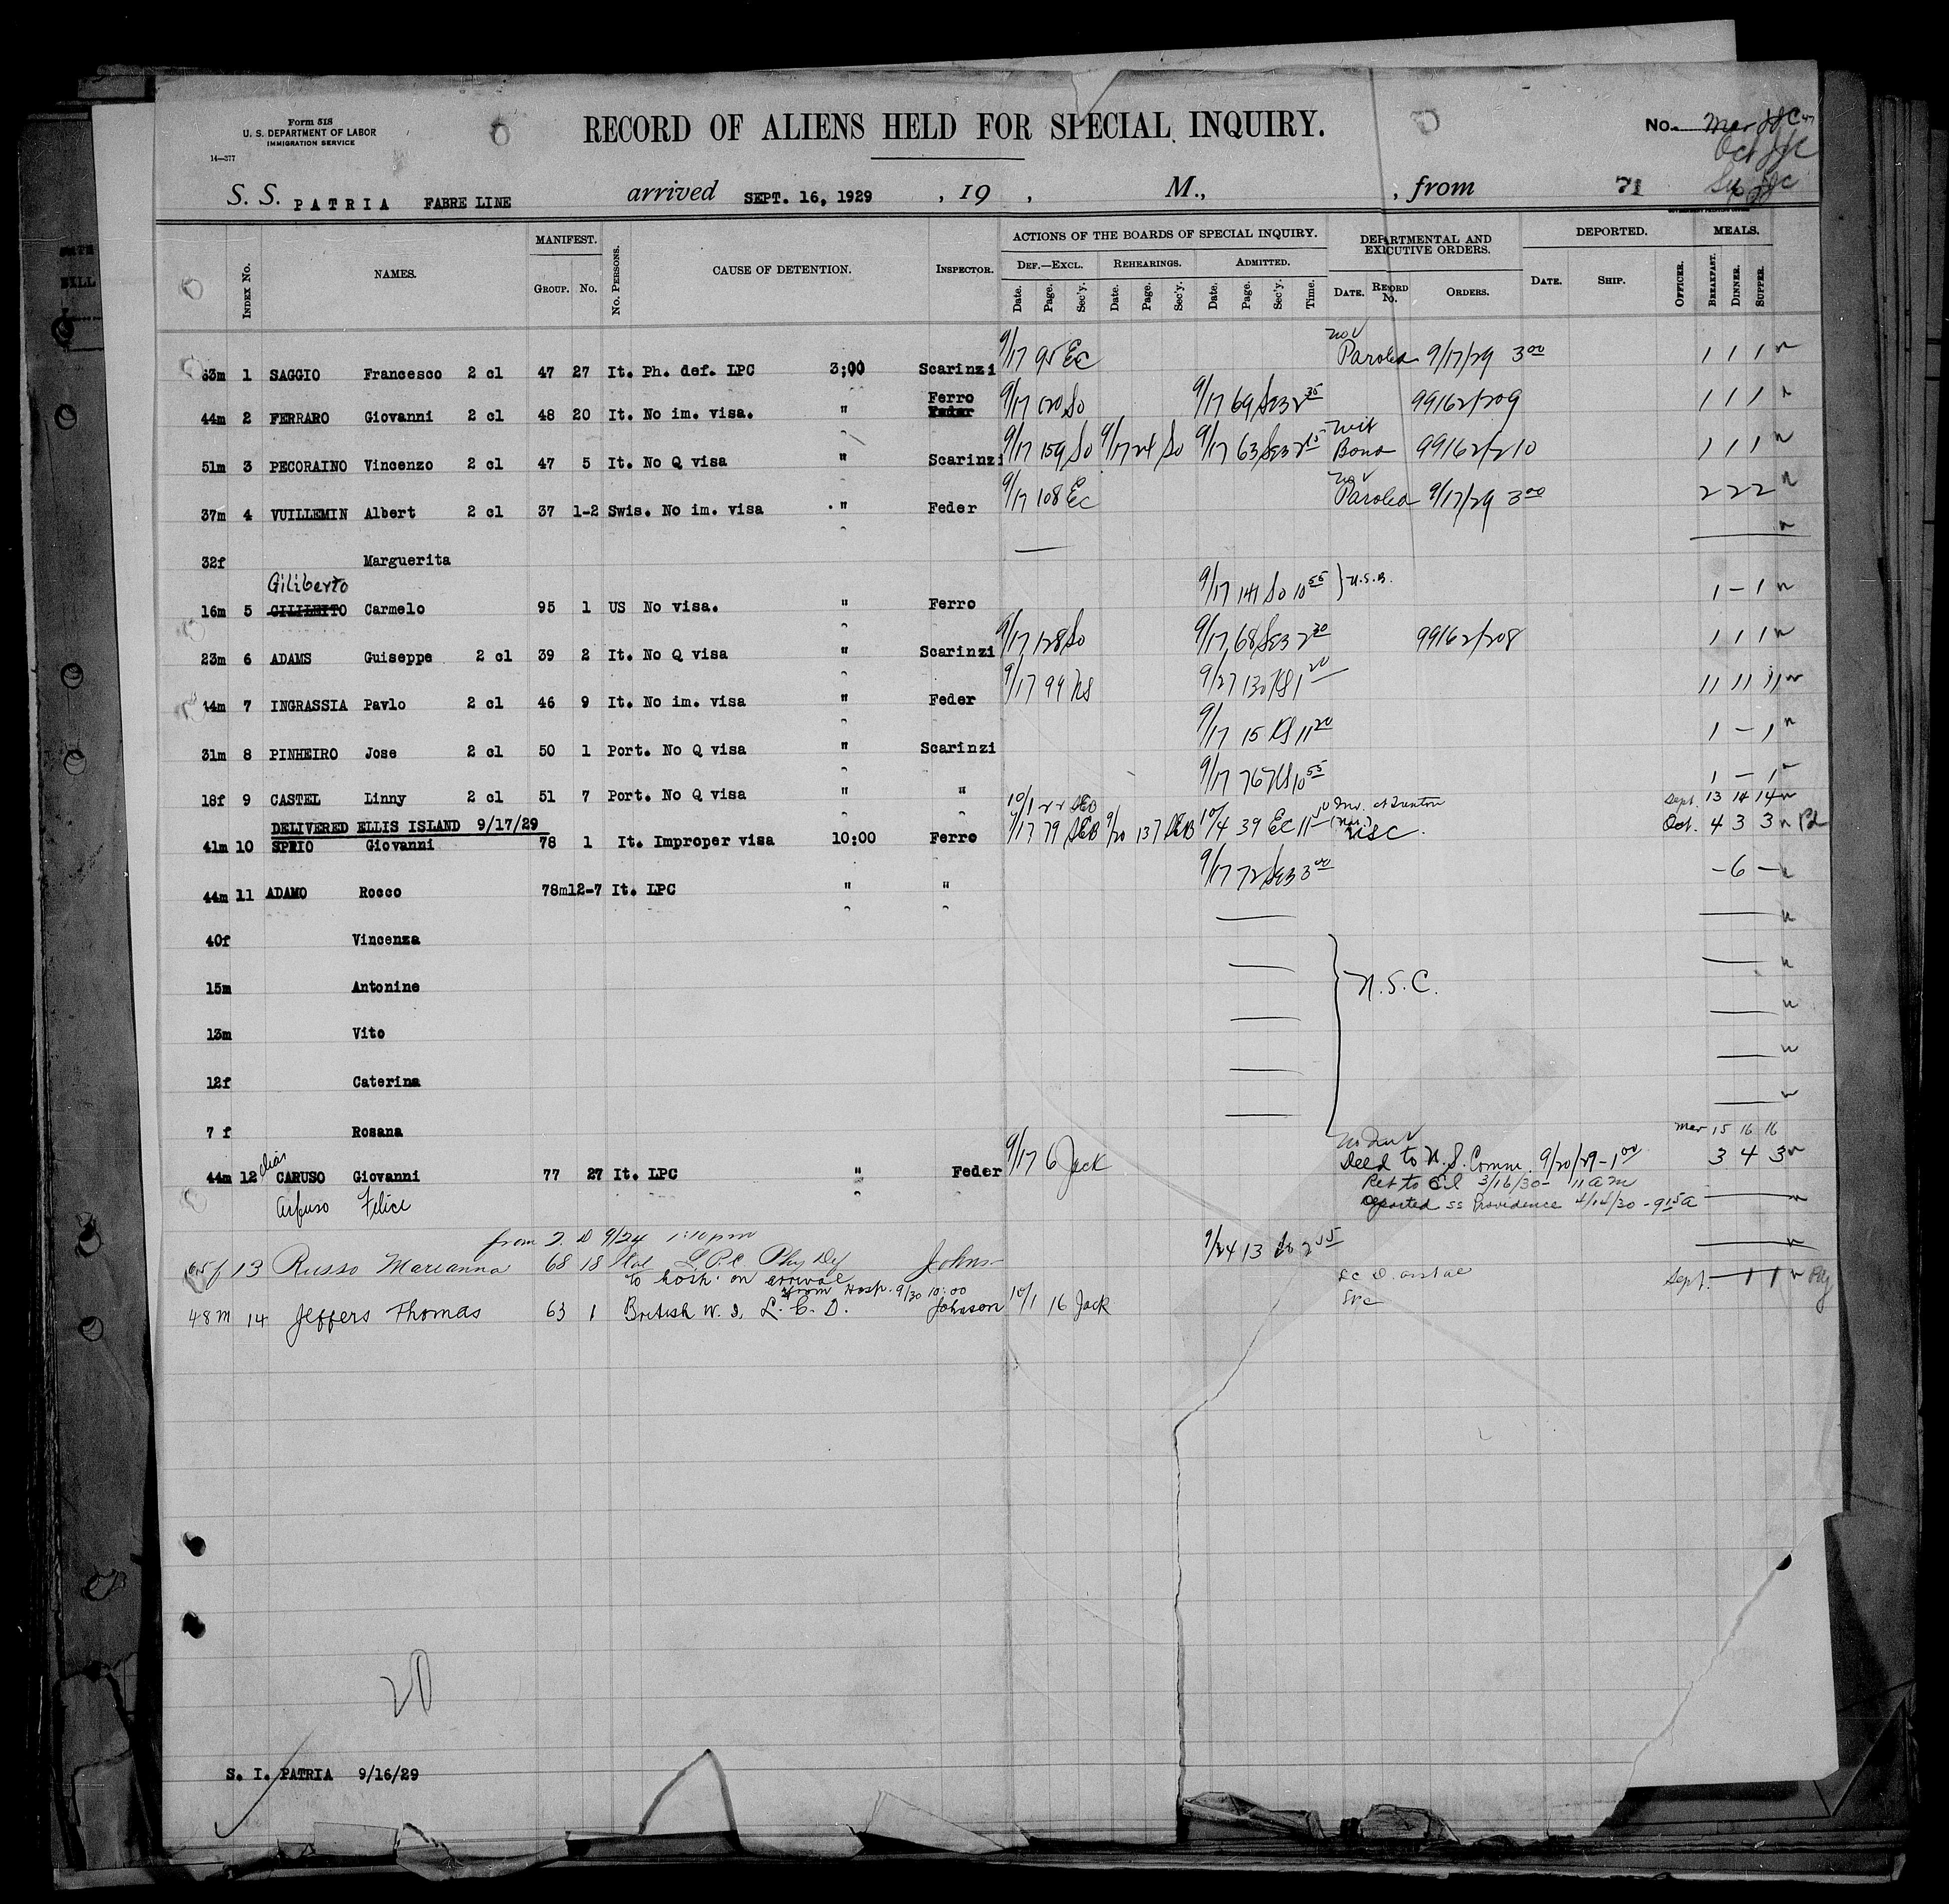 Form 518
U. S. DEPARTMENT OF LABOR
IMMIGRATION SERVICE
14—377
RECORD OF ALIENS HELD FOR SPECIAL INQUIRY.
No. Mar
Oct
S. S. PATRIA FABRE LINE arrived SEPT. 16, 1929 , 19 , M., , from 71
INDEX No. NAMES. MANIFEST. GROUP. No. No. PERSONS. CAUSE OF DETENTION. INSPECTOR.
ACTIONS OF THE BOARDS OF SPECIAL INQUIRY. DEF.—EXCL. REHEARINGS. ADMITTED.
Date. Page. Sec'y. Date. Page. Sec'y. Date. Page. Sec'y. Time.
DEPARTMENTAL AND EXECUTIVE ORDERS. DATE. RECORD No. ORDERS.
DEPORTED. DATE. SHIP. OFFICER.
MEALS. BREAKFAST. DINNER. SUPPER.
63m 1 SAGGIO Francesco 2 cl 47 27 It. Ph. def. LPC 3;00 Scarinzi 9/17 95 EC Paroled 9/17/29 3 00 1 1 1
Ferro
44m 2 FERRARO Giovanni 2 cl 48 20 It. No im. visa. " Feder 9/17 120 So 9/17 69 SEB 2 35 99162/209 1 1 1
51m 3 PECORAINO Vincenzo 2 cl 47 5 It. No Q visa " Scarinzi 9/17 159 So 9/17 24 So 9/17 63 SEB 2 15 Bond 99162/210 1 1 1
37m 4 VUILLEMIN Albert 2 cl 37 1-2 Swis. No im. visa " Feder 9/17 108 EC Paroled 9/17/29 3 00 2 2 2
32f Marguerita
Giliberto
16m 5 GILILEITO Carmelo 95 1 US No visa. " Ferro 9/17 141 So 10 55 } U.S.B. 1 – 1
23m 6 ADAMS Guiseppe 2 cl 39 2 It. No Q visa " Scarinzi 9/17 128 So 9/17 68 SEB 2 30 99162/208 1 1 1
44m 7 INGRASSIA Pavlo 2 cl 46 9 It. No im. visa " Feder 9/17 99 NS 9/27 130 NS 1 20 11 11 11
31m 8 PINHEIRO Jose 2 cl 50 1 Port. No Q visa " Scarinzi 9/17 15 NS 11 20 1 – 1
18f 9 CASTEL Linny 2 cl 51 7 Port. No Q visa " " 9/17 76 NS 10 55 1 – 1
DELIVERED ELLIS ISLAND 9/17/29 10/1 22 SEB Sept. 13 14 14
41m 10 SPRIO Giovanni 78 1 It. Improper visa 10:00 Ferro 9/17 79 SEB 9/20 137 SEB 10/4 39 EC 11 10 Oct. 4 3 3
44m 11 ADAMO Rocco 78m12-7 It. LPC " " 9/17 72 SEB 3 00 – 6 –
40f Vincenza
15m Antonine
N.S.C.
13m Vito
12f Caterina
7 f Rosana
Mar 15 16 16
alias
44m 12 CARUSO Giovanni 77 27 It. LPC " Feder 9/17 6 Jack Deld to U.S. Comm. 9/20/29 – 1 00 3 4 3
Ret to E.I. 3/16/30 – 11 am
Felice Deported ss Providence 4/14/30 – 9 15 a
from 9/24 1:10 pm
65f 13 Russo Marianna 68 18 Ital L.P.C Phy Def Johns 9/24 13 So 2 55
to hosp. on arrival
from Hosp. 9/30 10:00 Sept. – 1 1
48m 14 Jeffers Thomas 63 1 British W. I. L. C. D. Johnson 10/1 16 Jack
20
S. I. PATRIA 9/16/29